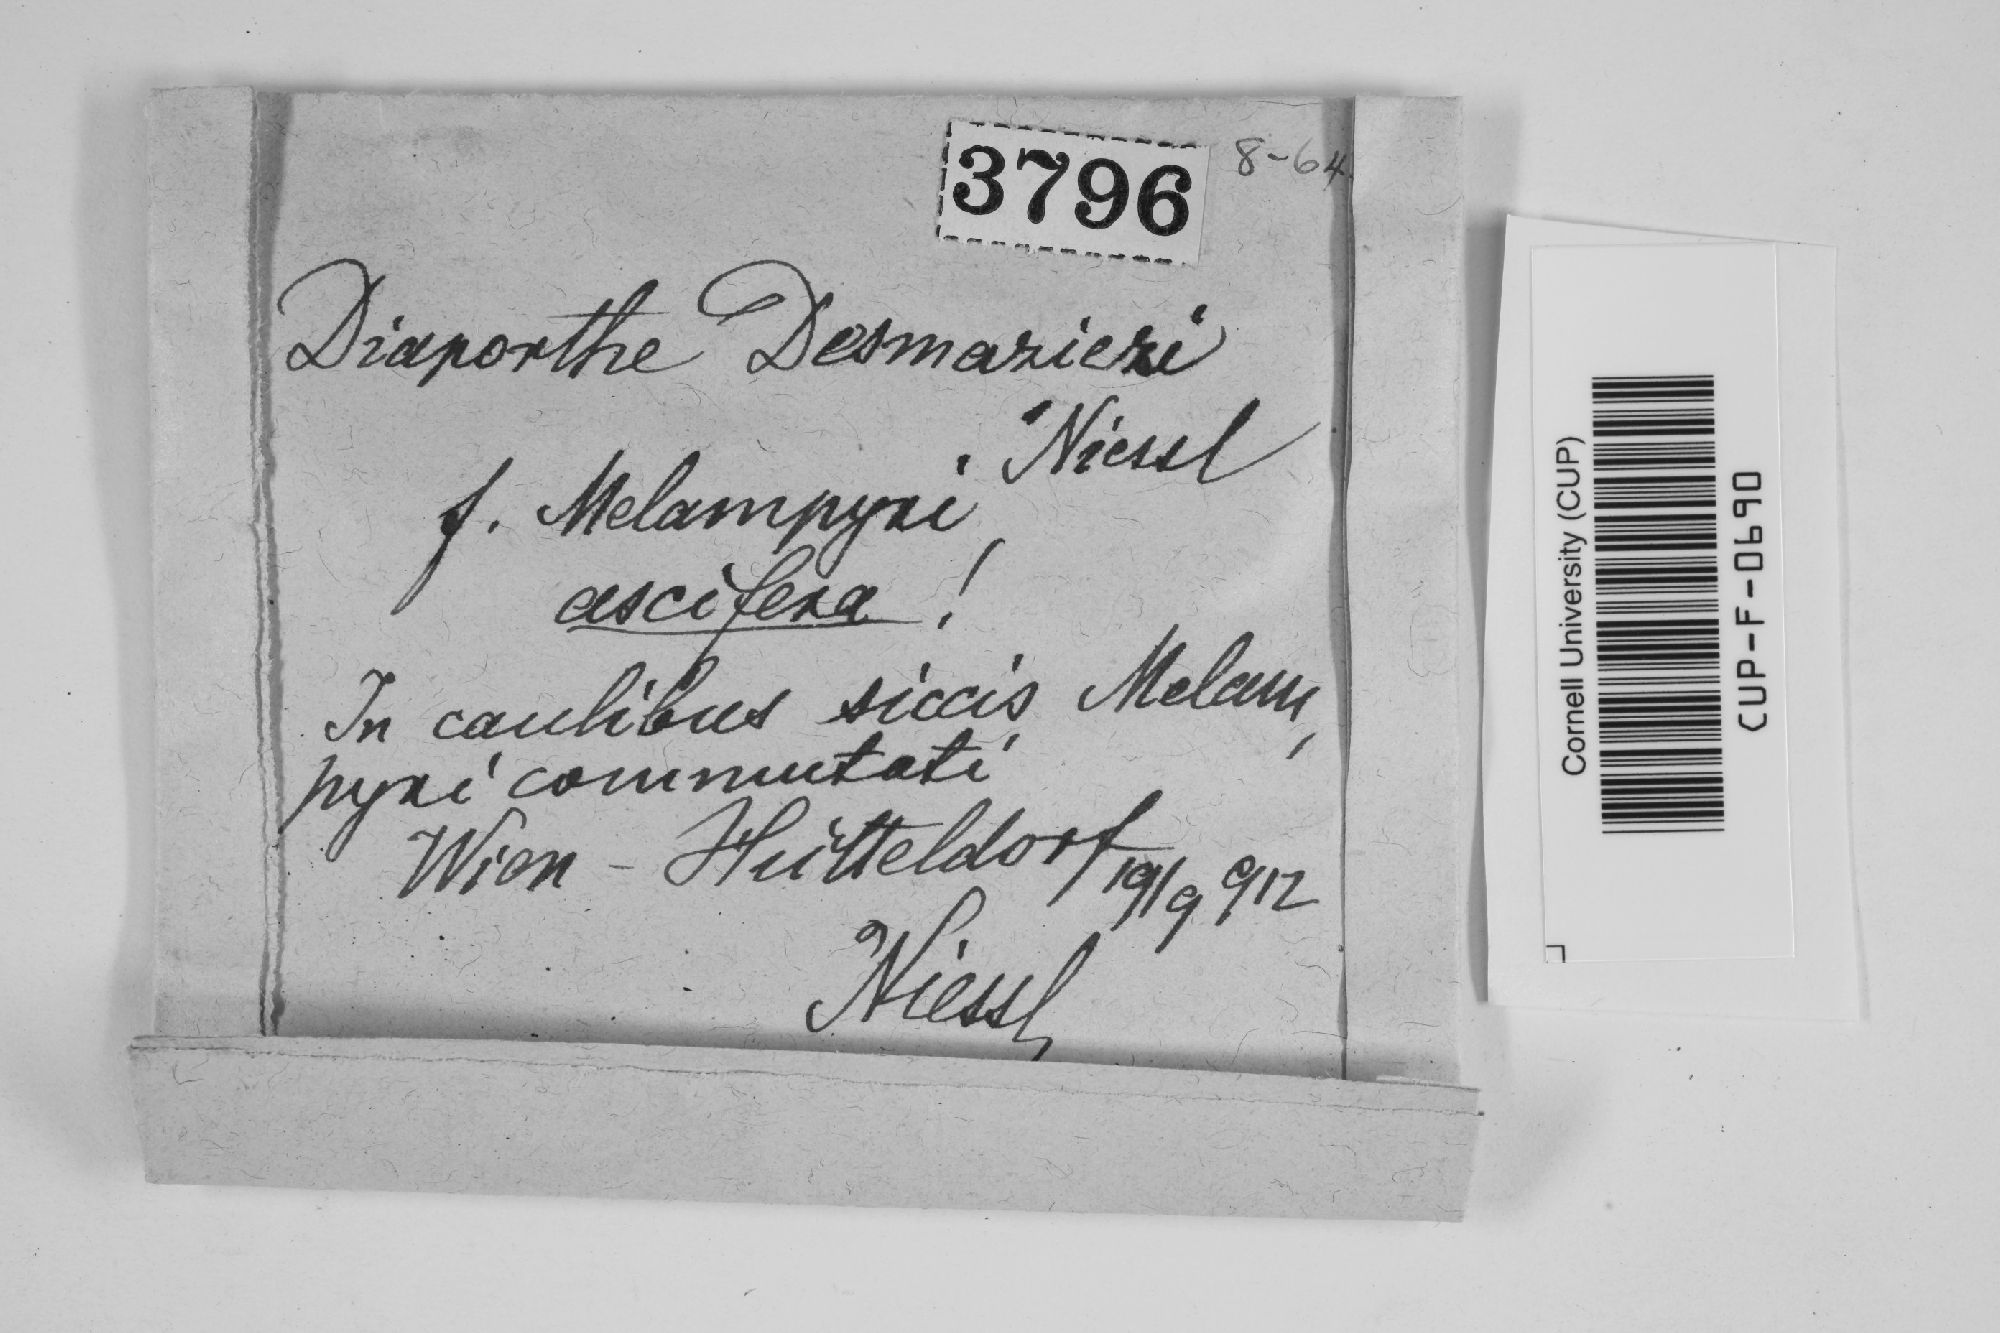 3796
8-64.
Diaporthe Desmazieri
Niessl
f. Melampyri
ascifera !
In caulibus siccis Melam,
pyri commutati
Wien - Hütteldorf 19/9 912
Niessl
Cornell University (CUP)
CUP-F-0690